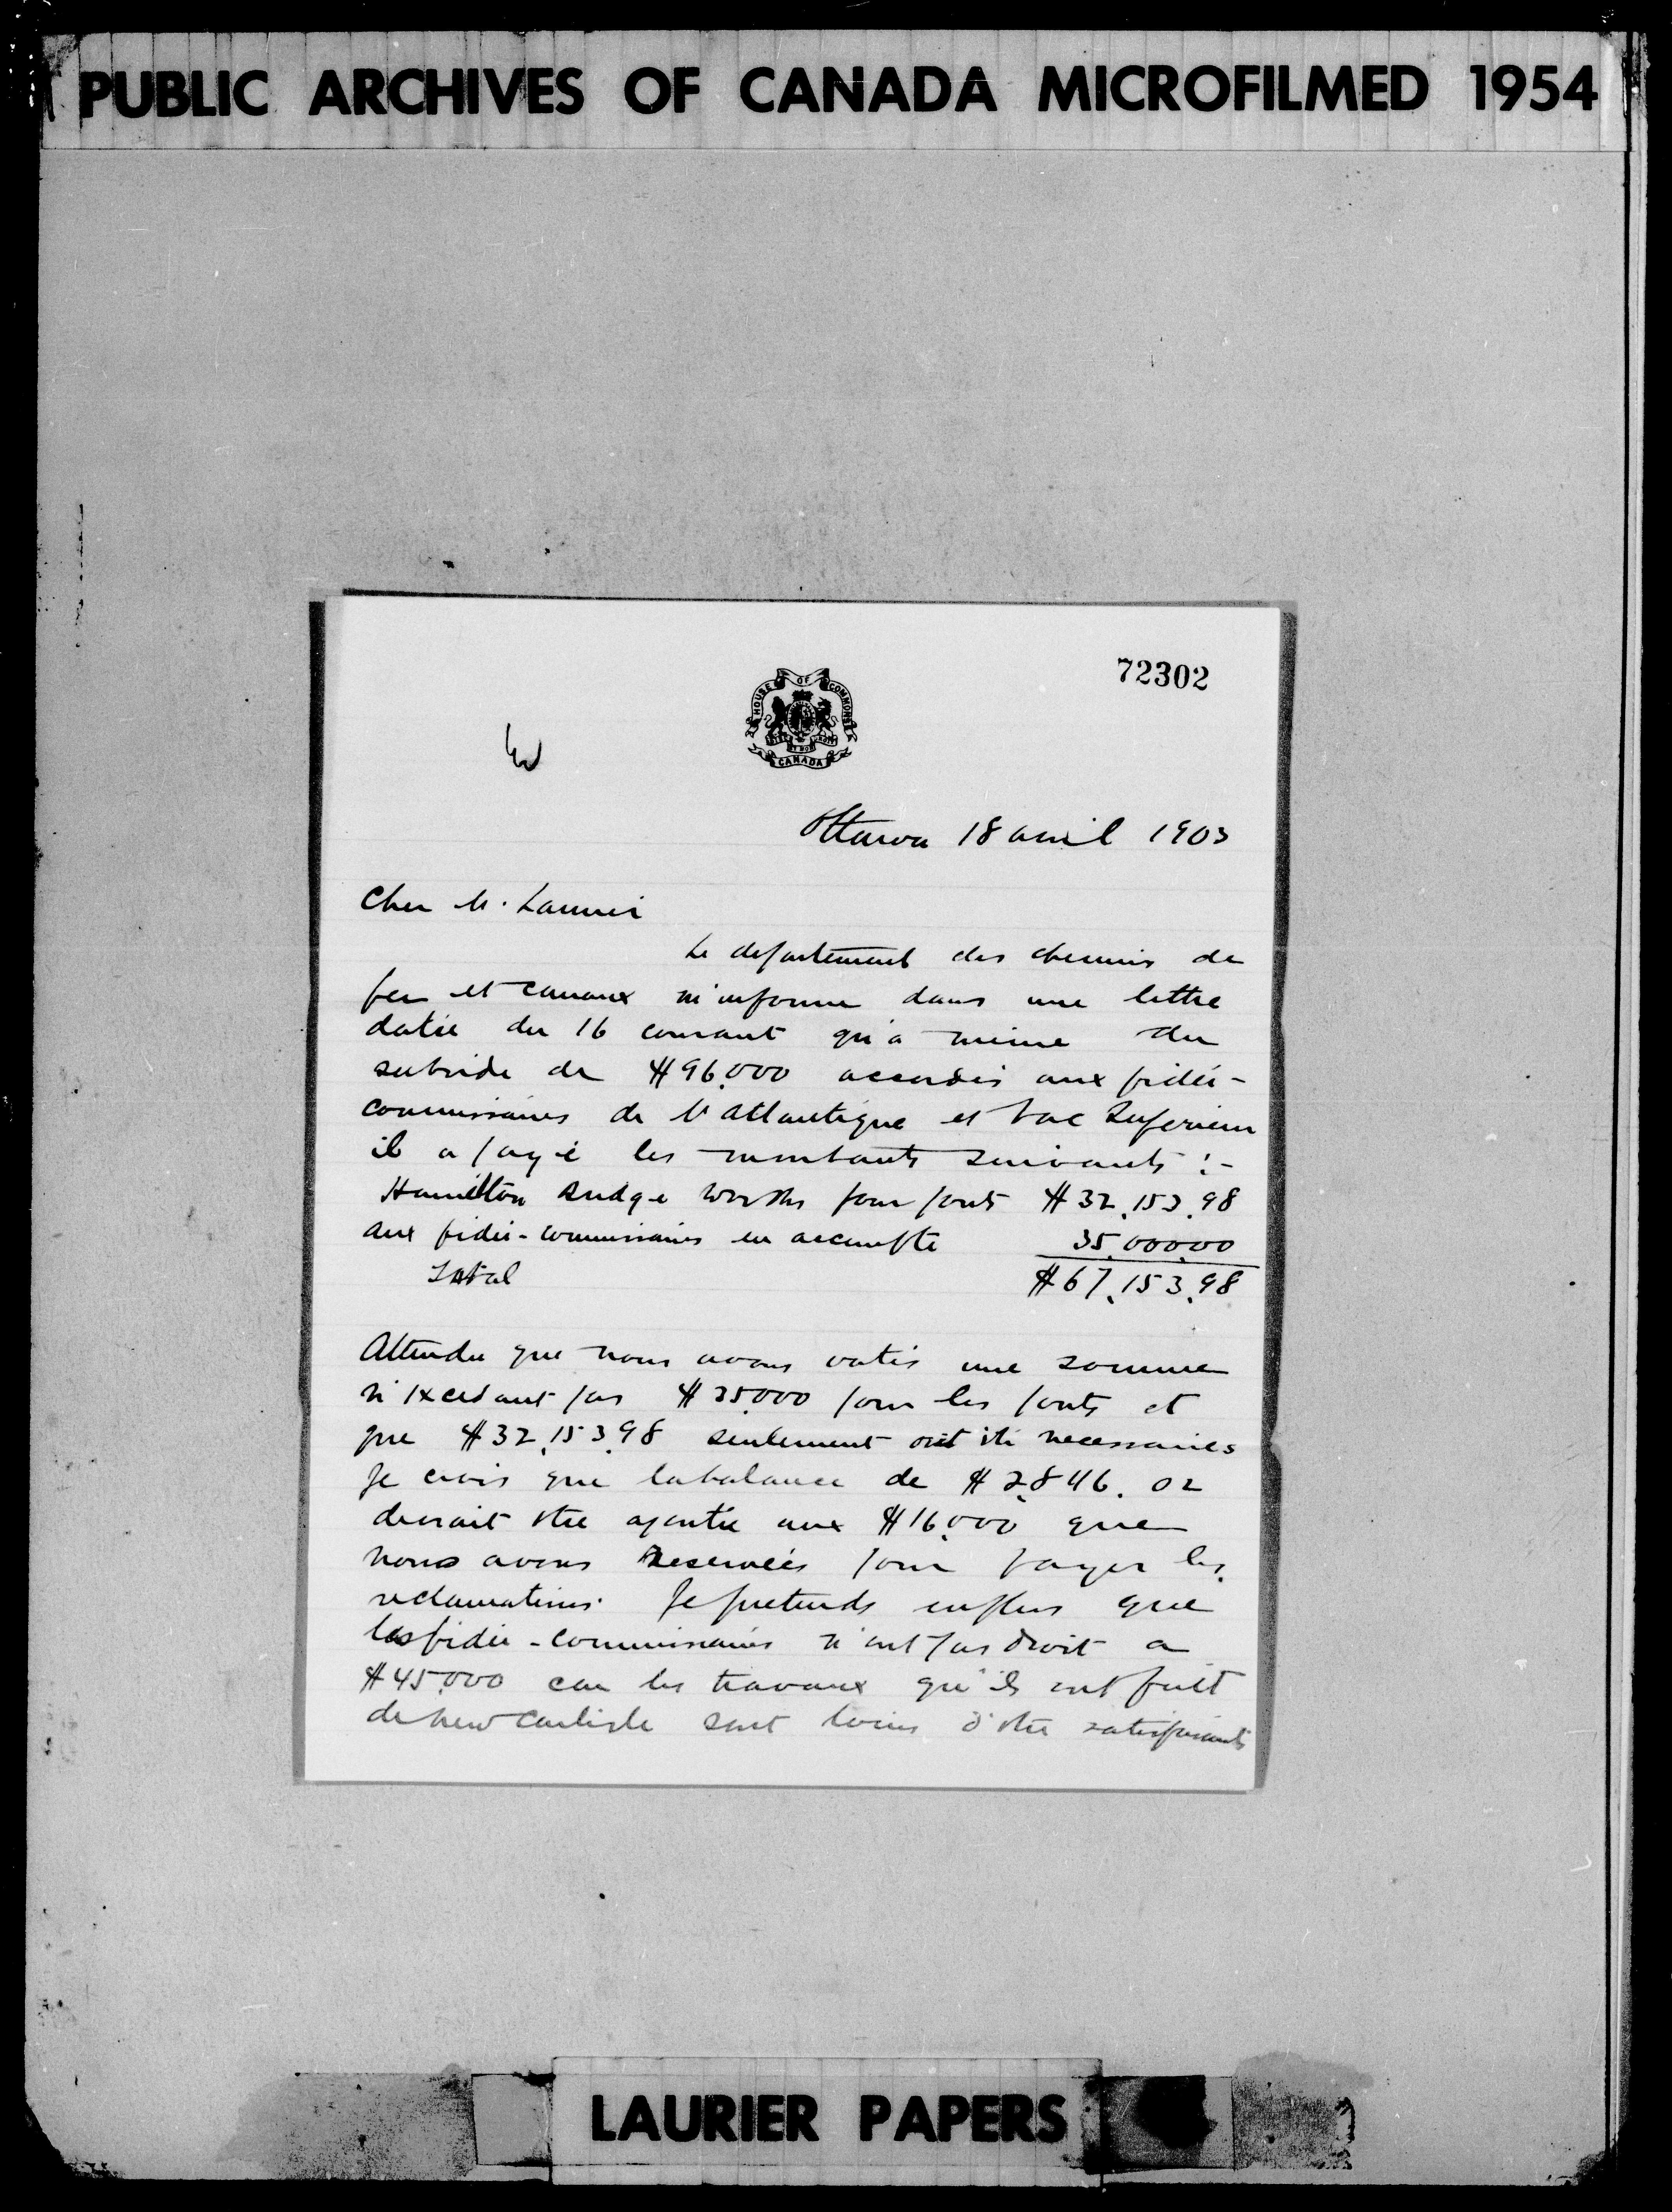 PUBLIC ARCHIVES OF CANADA MICROFILMED 1954
72302
HOUSE OF COMMONS
CANADA
Ottawa 18 avril 1903
Cher M. Laurier
Le departement des chemins de
fer et canaux m'informe dans une lettre
datée du 16 courant qu'a meme du
subside de $96,000 accordés aux fidéi-
commissaires de l'Atlantique et Lac Superieur
il a payé les montants suivants :-
Hamilton Bridge Works pour ponts $32,153.98
aux fidéi-commissaires en accompte 35,000.00
Total $67,153.98
Attendu que nous avons votés une somme
n'excedant pas $35,000 pour les ponts et
que $32,153.98 seulement ont été necessaires
Je crois que la balance de $2,846.02
devrait etre ajoutée aux $16,000 que
nous avons reservées pour payer les
reclamations. Je pretends en plus que
les fidéi-commissaires n'ont pas droit a
$45,000 car les travaux qu'ils ont fait
de New Carlisle sont loins d'etre satisfaisants
LAURIER PAPERS